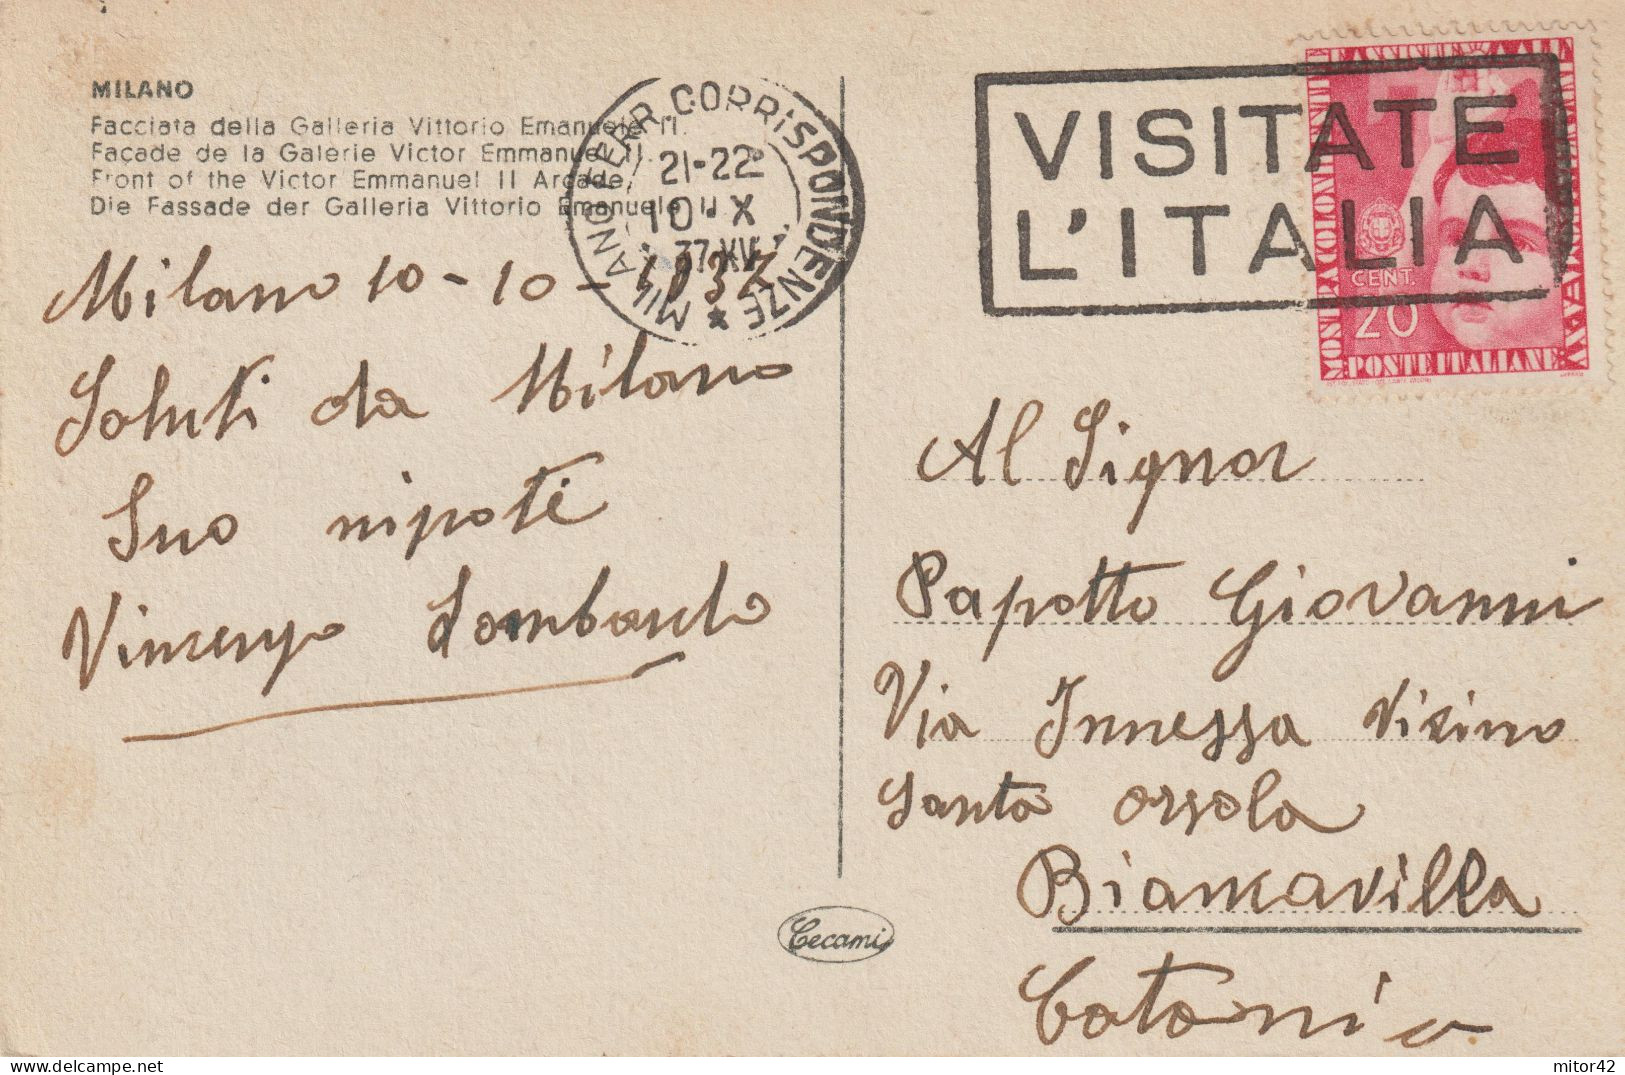 MILANO
Facciata della Galleria Vittorio Emanuele II.
Façade de la Galerie Victor Emmanuel II.
Front of the Victor Emmanuel II Arcade,
Die Fassade der Galleria Vittorio Emanuele II
MILANO FERR. CORRISPONDENZE *
21-22
10·X
37·XV
VISITATE
L'ITALIA
CENT.
20
POSTE ITALIANE
Milano 10-10-1937
Saluti da Milano
Suo nipote
Vincenzo Lombardo
Al Signor
Papotto Giovanni
Via Innessa vicino
Santa Orsola
Biancavilla
Catania
Cecami
mitor42